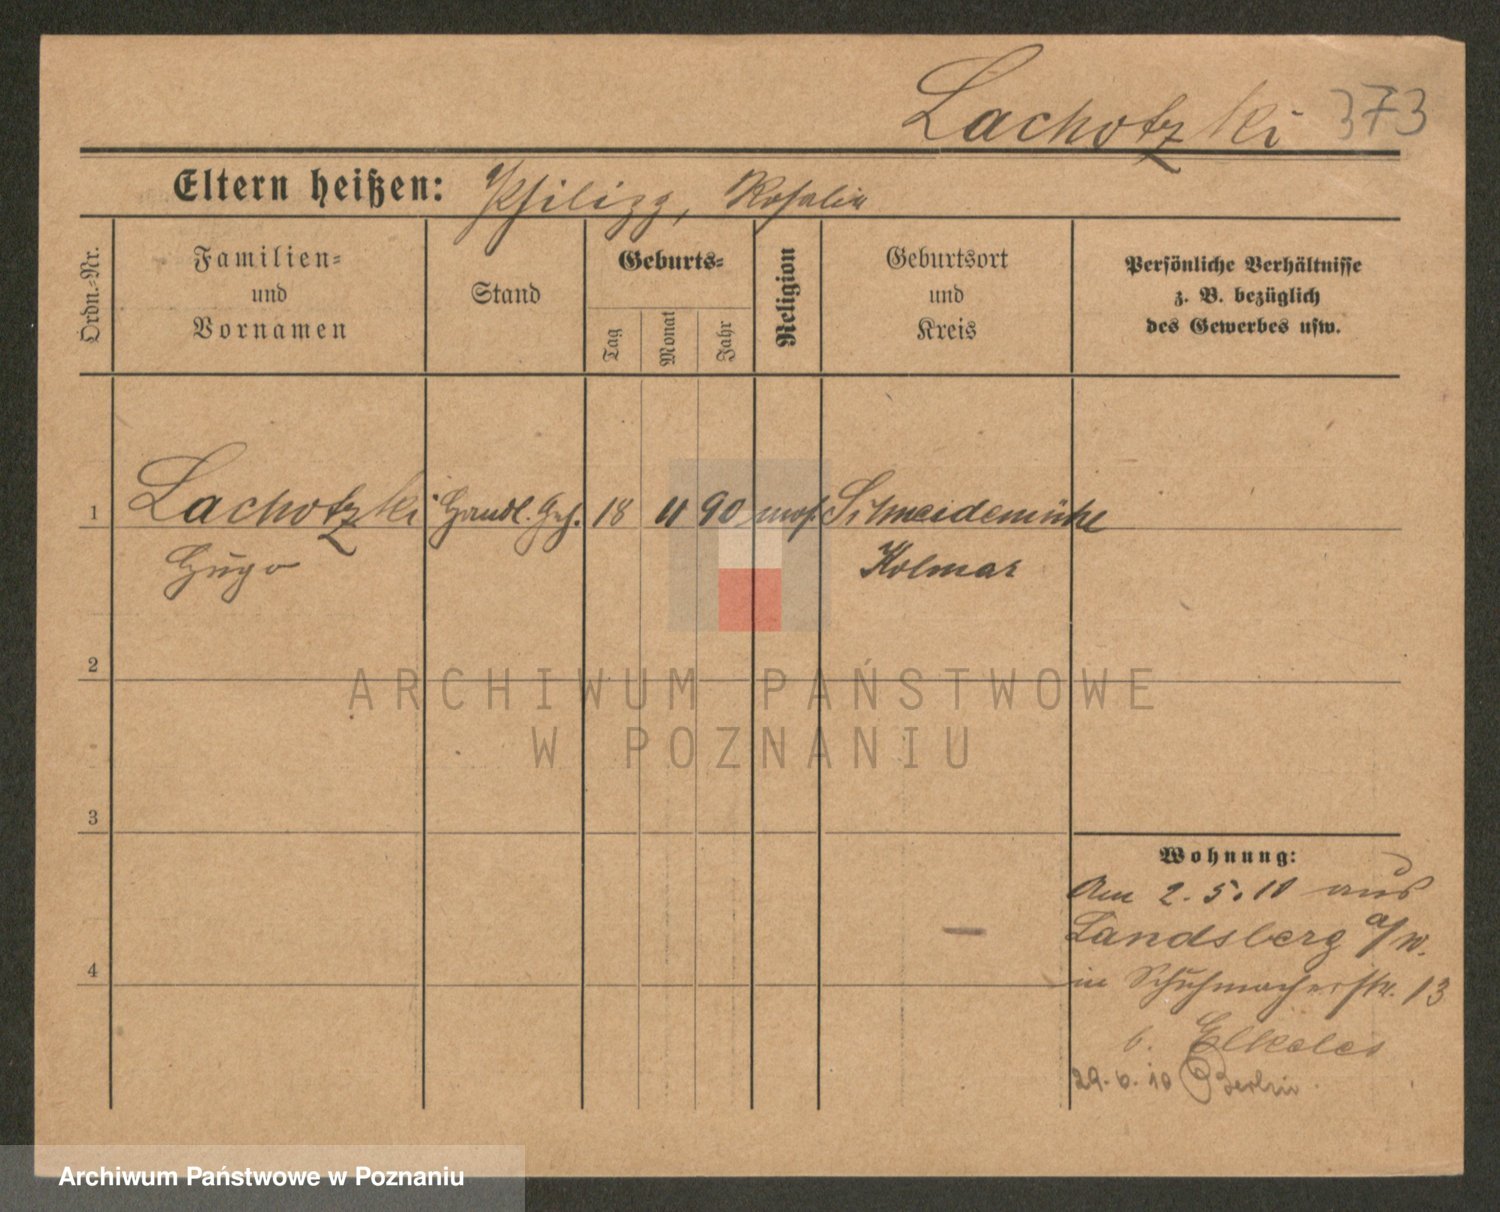 Lachotzki 373
Eltern heißen: Philipp, Rosalie
Ordn.-Nr.
Familien-
und
Vornamen
Stand
Geburts-
Tag
Monat
Jahr
Religion
Geburtsort
und
Kreis
Persönliche Verhältnisse
z. B. bezüglich
des Gewerbes usw.
1 Lachotzki Handl. Geh. 18 11 90 mos. Schneidemühl
Hugo Kolmar
2
3
4
Wohnung:
Am 2.5.10 aus
Landsberg a/W.
in Schuhmacherstr. 13
b. Elkeles
29.6.10 Berlin
ARCHIWUM PAŃSTWOWE
W POZNANIU
Archiwum Państwowe w Poznaniu